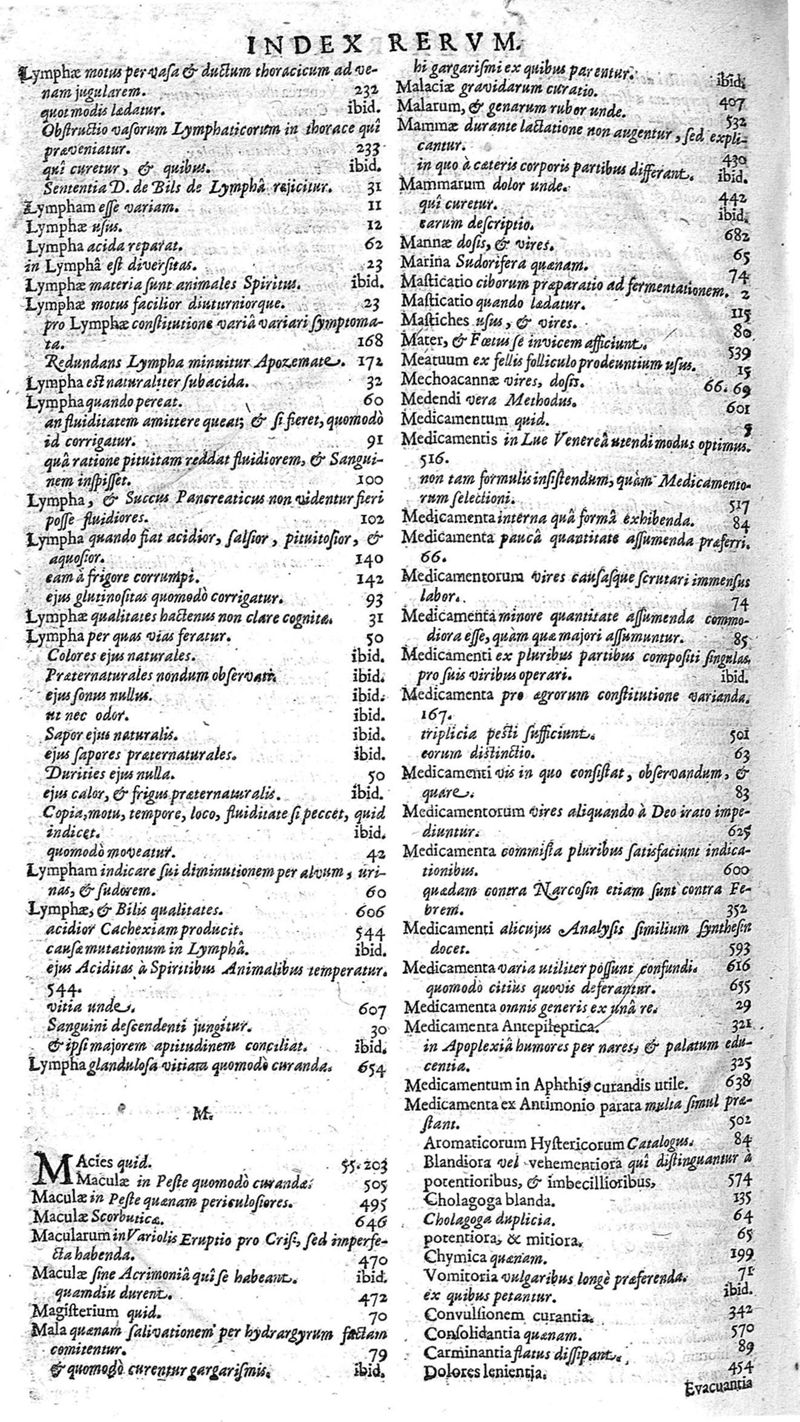 INDEX RERVM.
Lymphæ motus per vasa & ductum thoracicum ad ve-
nam jugularem. 232
quot modis lædatur. ibid.
Obstructio vasorum Lymphaticorum in thorace quî
præveniatur. 233
quî curetur, & quibus. ibid.
Sententia D. de Bils de Lymphâ rejicitur. 31
Lympham esse variam. 11
Lymphæ usus. 12
Lympha acida reparat. 62
in Lymphâ est diversitas. 23
Lymphæ materia sunt animales Spiritus. ibid.
Lymphæ motus facilior diuturniorque. 23
pro Lymphæ constitutione variâ variari symptoma-
ta. 168
Redundans Lympha minuitur Apozemate. 172
Lympha est naturaliter subacida. 32
Lympha quando pereat. 60
an fluiditatem amittere queat; & si fieret, quomodò
id corrigatur. 91
quâ ratione pituitam reddat fluidiorem, & Sangui-
nem inspisset. 100
Lympha, & Succus Pancreaticus non videntur fieri
posse fluidiores. 102
Lympha quando fiat acidior, salsior, pituitosior, &
aquosior. 140
eam à frigore corrumpi. 142
ejus glutinositas quomodò corrigatur. 93
Lymphæ qualitates hactenus non clare cognitæ. 31
Lympha per quas vias feratur. 50
Colores ejus naturales. ibid.
Præternaturales nondum observati. ibid.
ejus sonus nullus. ibid.
ut nec odor. ibid.
Sapor ejus naturalis. ibid.
ejus sapores præternaturales. ibid.
Durities ejus nulla. 50
ejus calor, & frigus præternaturalis. ibid.
Copia, motu, tempore, loco, fluiditate si peccet, quid
indicet. ibid.
quomodò moveatur. 42
Lympham indicare sui diminutionem per alvum, uri-
nas, & sudorem. 60
Lymphæ, & Bilis qualitates. 606
acidior Cachexiam producit. 544
causæ mutationum in Lymphâ. ibid.
ejus Aciditas à Spiritibus Animalibus temperatur.
544.
vitia unde. 607
Sanguini descendenti jungitur. 30
& ipsi majorem aptitudinem conciliat. ibid.
Lympha glandulosa vitiata quomodò curanda. 654
M.
MAcies quid. 55. 203
Maculæ in Peste quomodò curandæ. 505
Maculæ in Peste quænam periculosiores. 495
Maculæ Scorbuticæ. 646
Macularum in Variolis Eruptio pro Crisi, sed imperfe-
cta habenda. 470
Maculæ sine Acrimoniâ quî se habeant. ibid.
quamdiu durent. 472
Magisterium quid. 70
Mala quænam salivationem per hydrargyrum factam
comitentur. 79
& quomodò curentur gargarismis. ibid.
hi gargarismi ex quibus parentur. ibid.
Malaciæ gravidarum curatio. 407
Malarum, & genarum rubor unde. 532
Mammæ durante lactatione non augentur, sed expli-
cantur. 430
in quo à cæteris corporis partibus differant. ibid.
Mammarum dolor unde. 442
quî curetur. ibid.
earum descriptio. 682
Mannæ dosis, & vires. 65
Marina Sudorifera quænam. 74
Masticatio ciborum præparatio ad fermentationem. 2
Masticatio quando lædatur. 115
Mastiches usus, & vires. 80
Mater, & Fœtus se invicem afficiunt. 539
Meatuum ex fellis folliculo prodeuntium usus. 15
Mechoacannæ vires, dosis. 66. 69
Medendi vera Methodus. 601
Medicamentum quid.
Medicamentis in Lue Venereâ utendi modus optimus.
516.
non tam formulis insistendum, quàm Medicamento-
rum selectioni. 517
Medicamenta interna quâ formâ exhibenda. 84
Medicamenta paucâ quantitate assumenda præferri.
66.
Medicamentorum vires causasque scrutari immensus
labor. 74
Medicamenta minore quantitate assumenda commo-
diora esse, quàm quæ majori assumuntur. 85
Medicamenti ex pluribus partibus compositi singulas
pro suis viribus operari. ibid.
Medicamenta pro ægrorum constitutione varianda.
167.
triplicia pesti sufficiunt. 501
eorum distinctio. 63
Medicamenti vis in quo consistat, observandum, &
quare. 83
Medicamentorum vires aliquando à Deo irato impe-
diuntur. 625
Medicamenta commista pluribus satisfaciunt indica-
tionibus. 600
quædam contra Narcosin etiam sunt contra Fe-
brem. 352
Medicamenti alicujus Analysis similium synthesin
docet. 593
Medicamenta varia utiliter possunt confundi. 616
quomodò citiùs quovis deferantur. 655
Medicamenta omnis generis ex unâ re. 29
Medicamenta Antepileptica. 321
in Apoplexiâ humores per nares, & palatum edu-
centia. 325
Medicamentum in Aphthis curandis utile. 638
Medicamenta ex Antimonio parata multa simul præ-
stant. 502
Aromaticorum Hystericorum Catalogus. 84
Blandiora vel vehementiora quî distinguantur à
potentioribus, & imbecillioribus, 574
Cholagoga blanda. 135
Cholagoga duplicia. 64
potentiora, & mitiora. 65
Chymica quænam. 199
Vomitoria vulgaribus longè præferenda. 71
ex quibus petantur. ibid.
Convulsionem curantia. 342
Consolidantia quænam. 570
Carminantia flatus dissipant. 89
Dolores lenientia. 454
Evacuantia